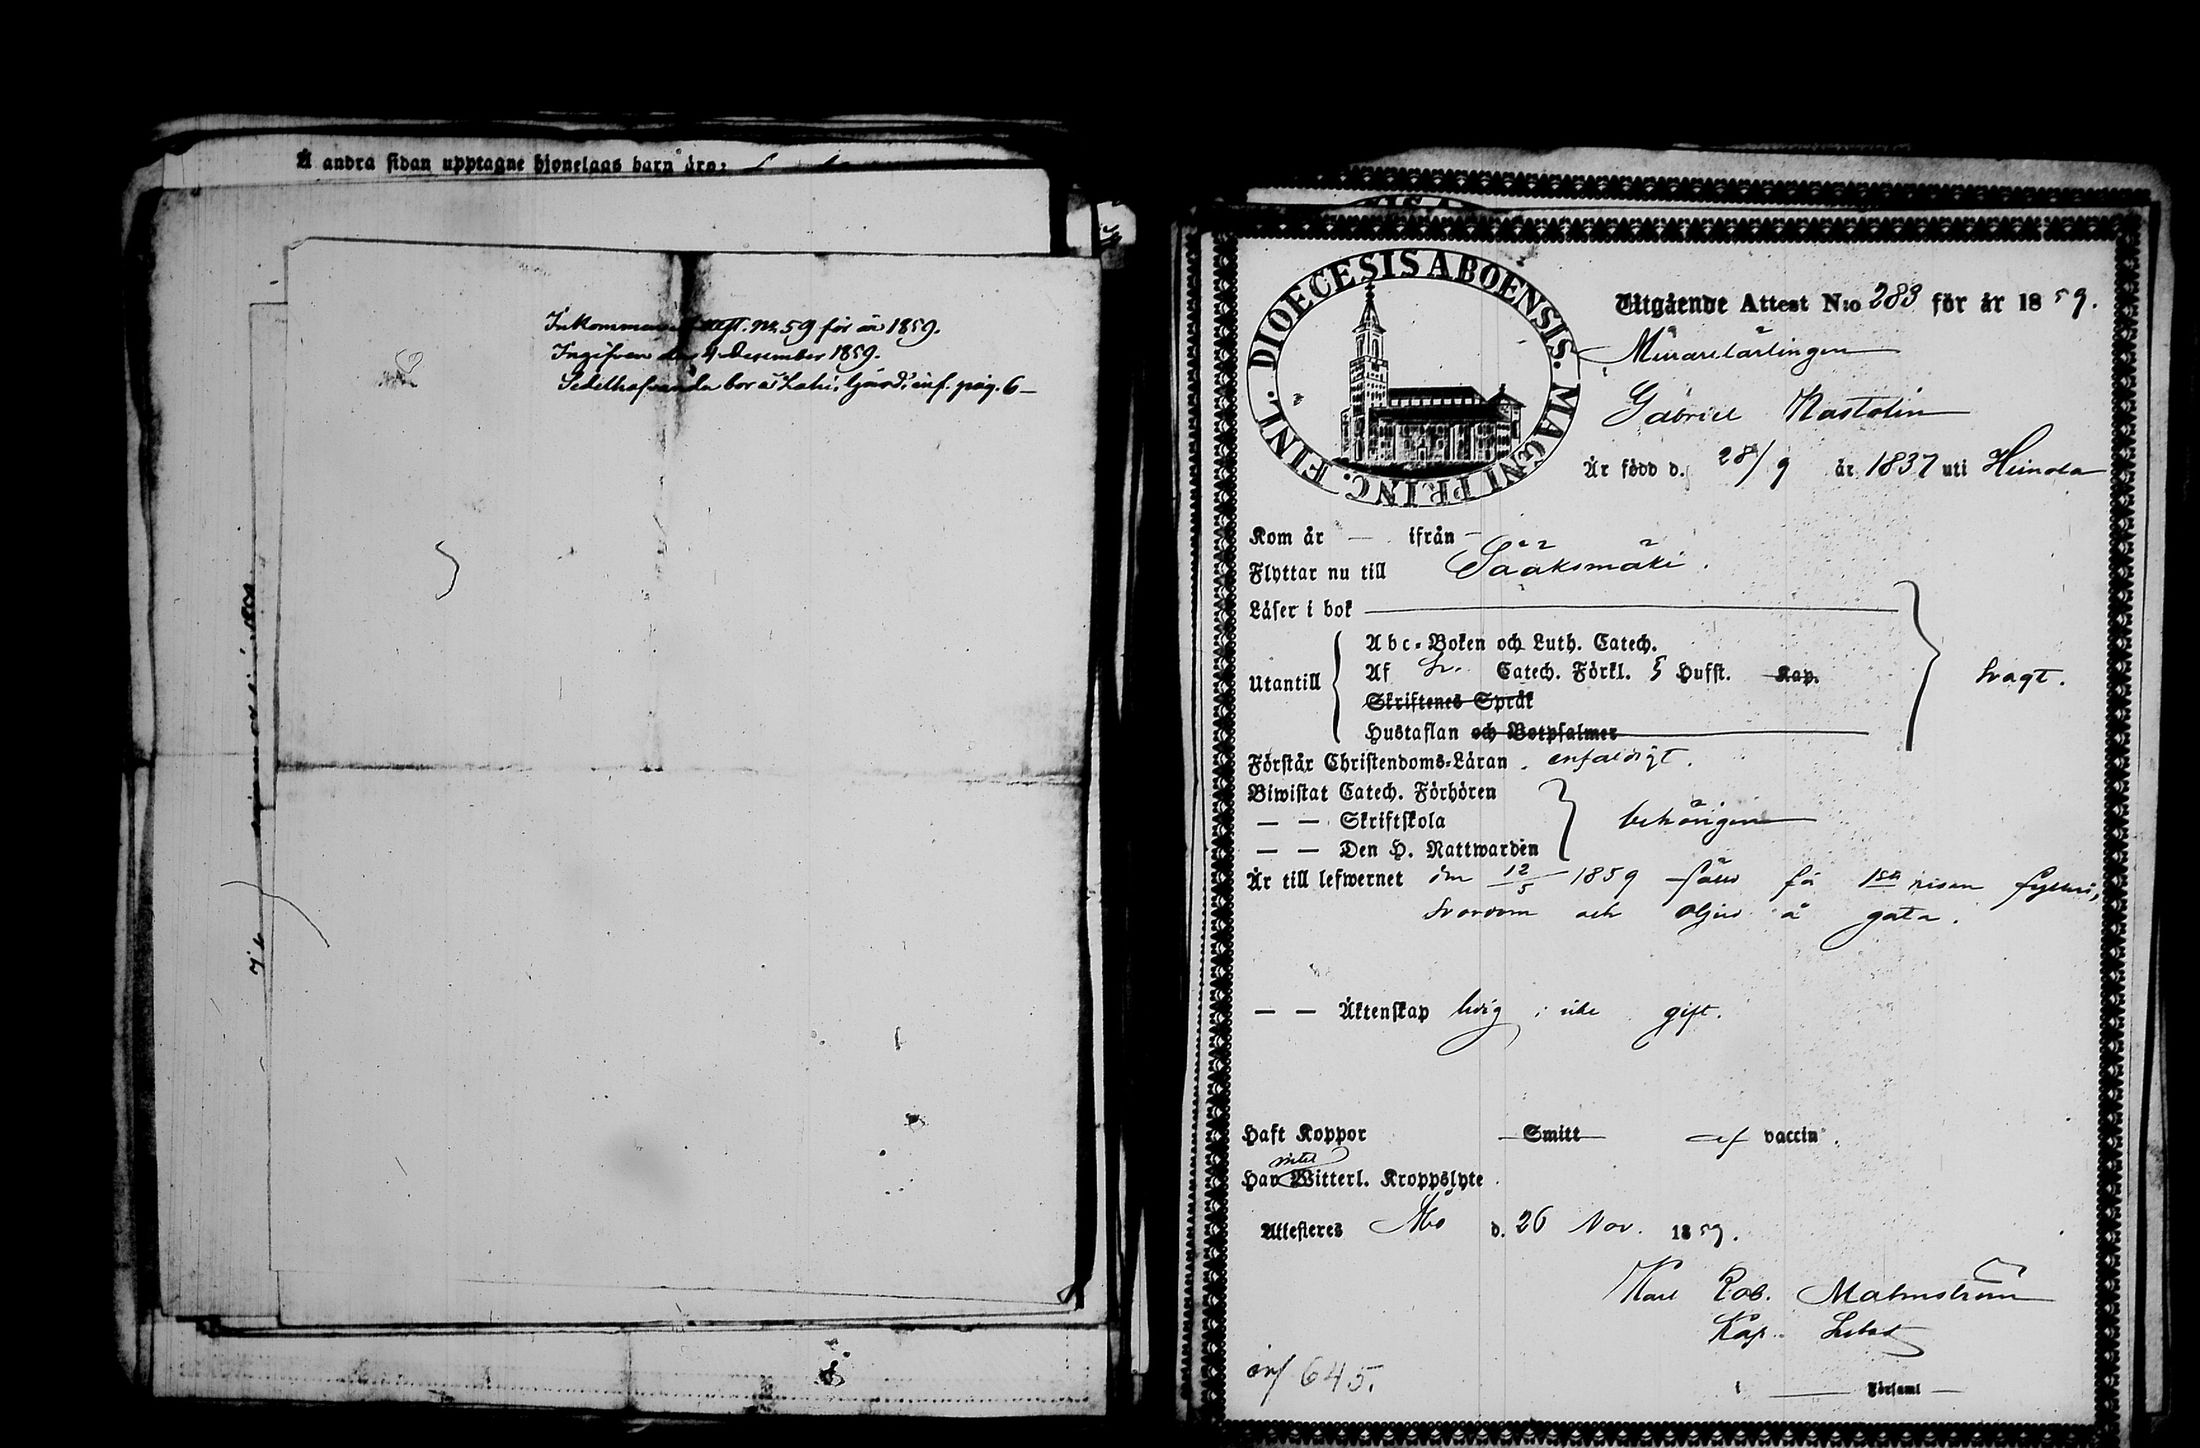 Å andra sidan upptagne hjonelags barn äro:
Inkommande att. nr. 59 för år 1859.
Ingifven den 4 December 1859.
Sedelhafvande bor å Lahi, Gård, inf. pag. 6
DIOECESIS ABOENSIS. MAGNI PRINC. FINL.
Utgående Attest N:o 283 för år 1859.
Murarelärlingen
Gabriel Nastolin
Är född d. 28/9 år 1837 uti Heinola
Kom år — ifrån —
Flyttar nu till Sääksmäki.
Läser i bok
Abc-Boken och Luth. Catech.
Utantill Af Sv. Catech. Förkl. 5 Hufst. Kap. svagt.
Skriftenes Språk
Hustaflan och Botpsalmer
Förstår Christendoms-Läran enfaldigt.
Biwistat Catech. Förhören
— — Skriftskola behörigen
— — Den H. Nattwarden
Är till lefwernet den 12/5 1859 sakf. för 1sta resan fylleri,
svordom och oljud å gata.
— — Äktenskap ledig; icke gift.
Haft Koppor Smitt af vaccin.
Har intet Witterl. Kroppslyte
Attesteras Åbo d. 26 Nov. 1859.
Karl Rob. Malmström
Kap.
inf 645.
i Församl